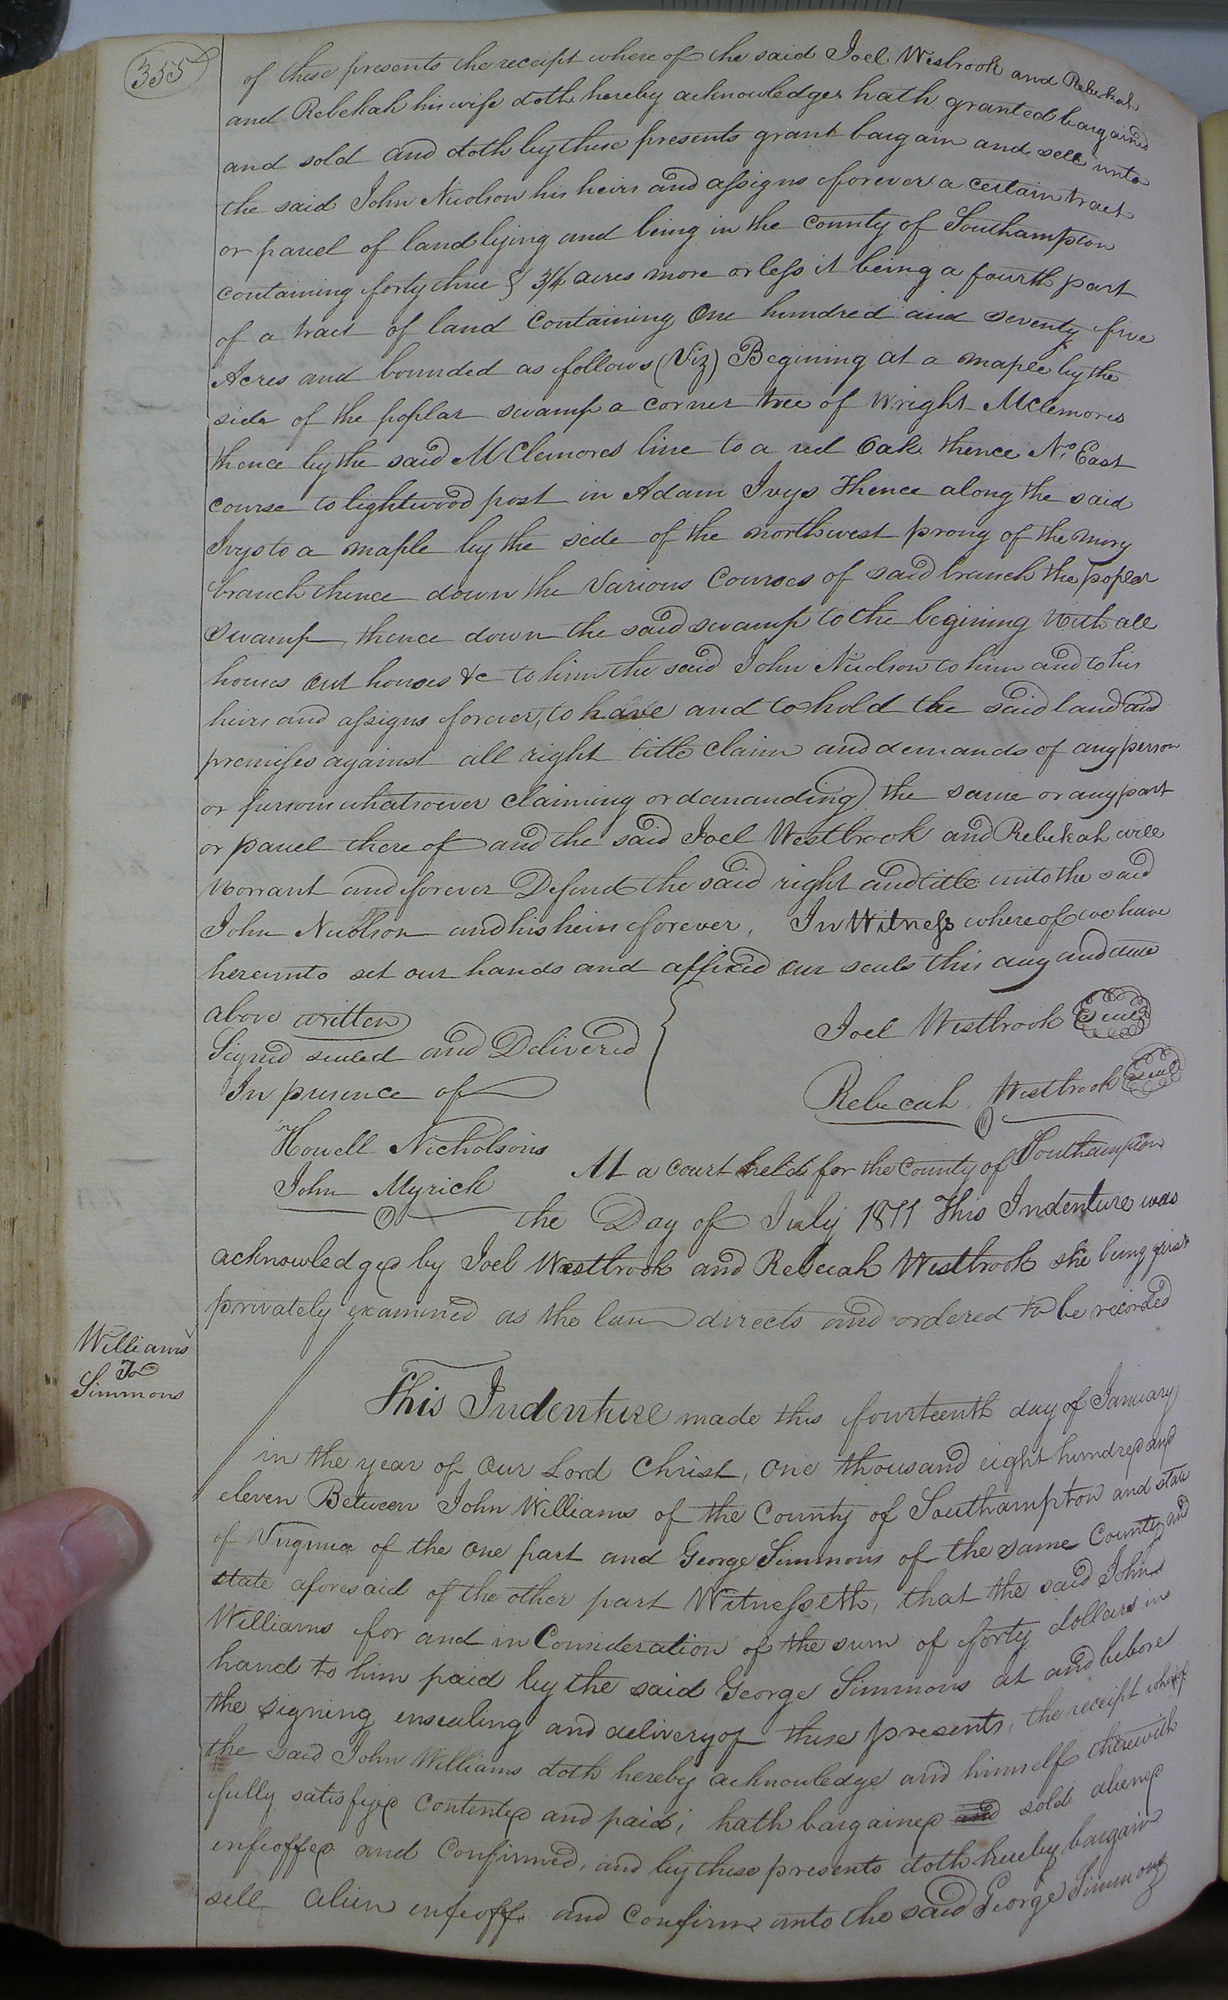 355
of these presents the receipt where of the said Joel Westbrook and Rebekah
and Rebekah his wife doth hereby acknowledges hath granted bargained
and sold and doth by these presents grant bargain and sell unto
the said John Nicolson his heirs and assigns forever a certain tract
or parcel of land lying and being in the county of Southampton
containing forty three & 3/4 acres more or less it being a fourth part
of a tract of land containing One hundred and seventy five
Acres and bounded as follows (Viz) Begining at a maple by the
side of the poplar swamp a corner tree of Wright Mclemores
thence by the said McClemores line to a red Oak thence No East
course to lightwood post in Adam Ivys Thence along the said
Ivys to a maple by the side of the northwest prong of the miry
branch thence down the Various Courses of said branch the poplar
swamp, thence down the said swamp to the begining With all
houses out houses &c to him the said John Nicolson to him and to his
heirs and assigns forever, to have and to hold the said land and
premises against all right title claim and demands of any person
or persons whatsoever claiming or demanding the same or any part
or parcel there of and the said Joel Westbrook and Rebekah will
Worrant and forever Defend the said right and title unto the said
John Nicolson and his heirs forever. In Witness where of we have
hereunto set our hands and affixed our seals this day and date
above written
Signed sealed and Delivered
In presence of
Joel Westbrook Seal
Rebecah Westbrook Seal
Howell Nicholsons
John Myrick
At a court held for the County of Southampton
the Day of July 1811 This Indenture was
acknowledged by Joel Westbrook and Rebecah Westbrook she being first
privately examined as the law directs and ordered to be recorded
Williams
To
Simmons
This Indenture made this fourteenth day of January
in the year of Our Lord Christ, One thousand eight hundred and
eleven Between John Williams of the County of Southampton and state
of Virginia of the one part and George Simmons of the same County and
state aforesaid of the other part Witnesseth, that the said John
Williams for and in Consideration of the sum of forty dollars in
hand to him paid by the said George Simmons at and before
the signing ensealing and delivery of these presents, the receipt whereof
the said John Williams doth hereby acknowledge and himself therewith
fully satisfyed Contented and paid; hath bargained and sold aliened
infeoffed and Confirmed, and by these presents doth hereby bargain
sell Alien enfeoff and Confirm unto the said George Simmons